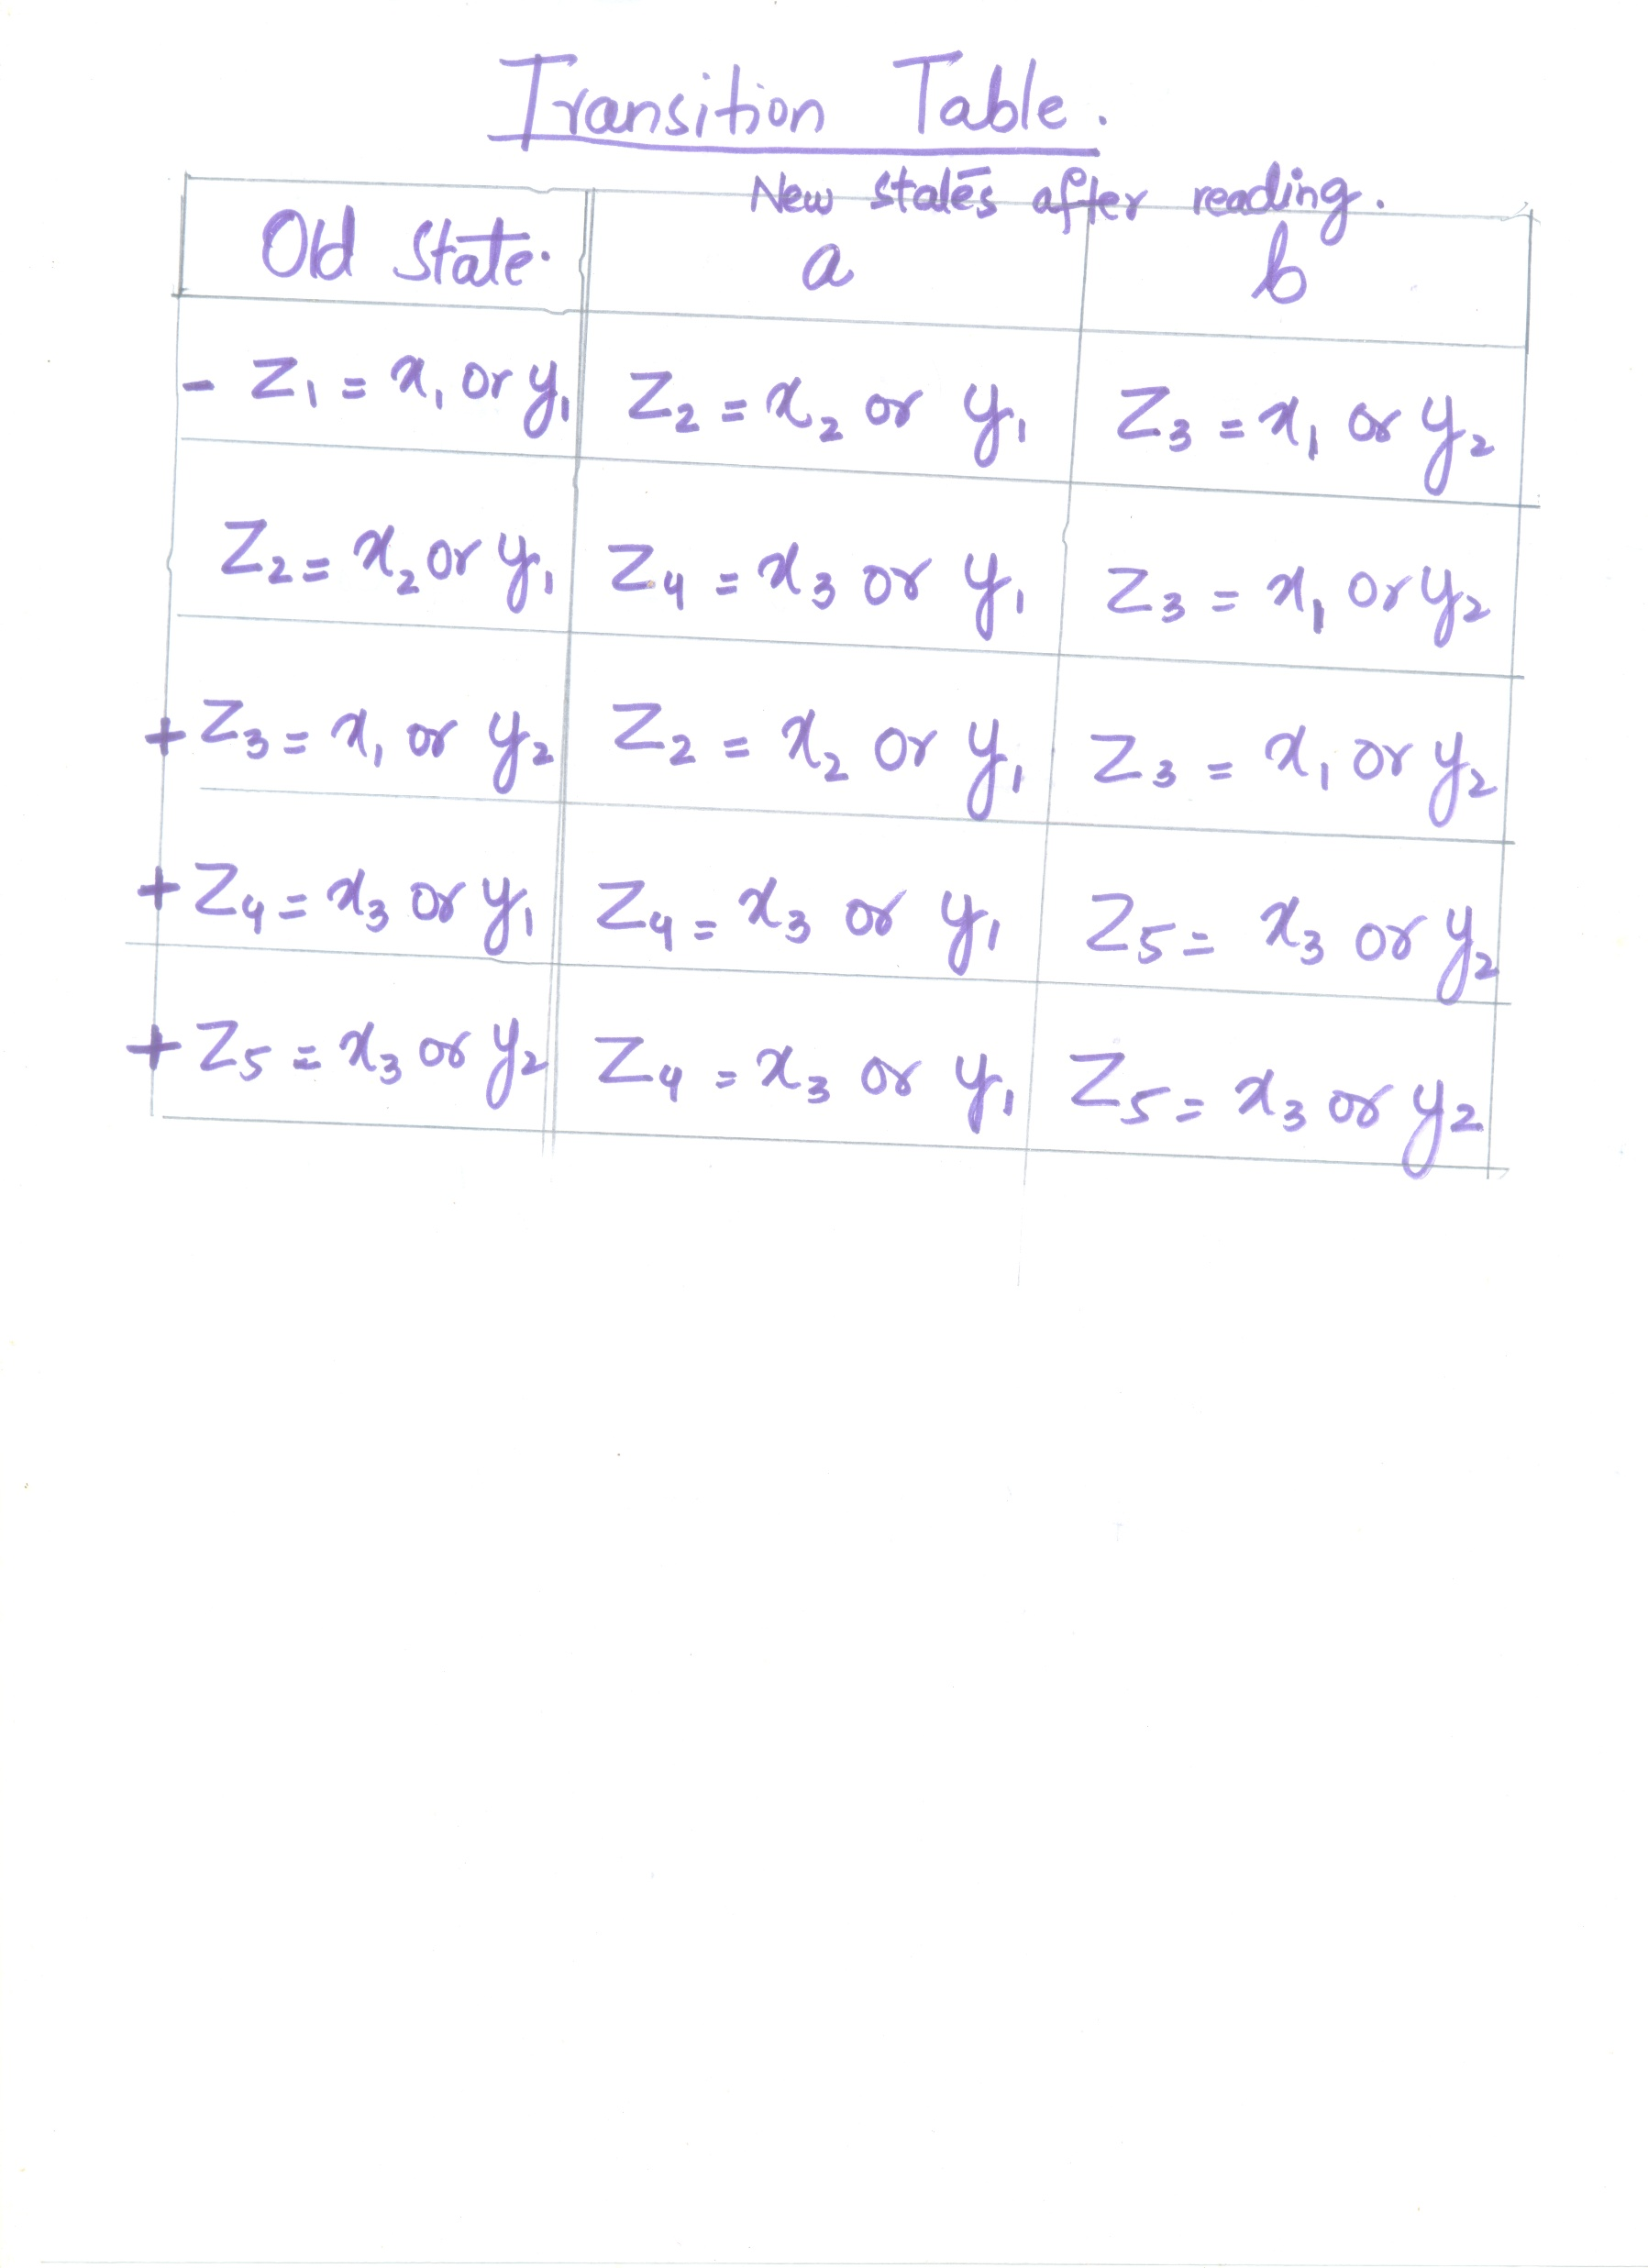 Transition Table.
New states after reading.
Old State. a b
- Z1 = x1 or y1 Z2 = x2 or y1 Z3 = x1 or y2
Z2 = x2 or y1 Z4 = x3 or y1 Z3 = x1 or y2
+ Z3 = x1 or y2 Z2 = x2 or y1 Z3 = x1 or y2
+ Z4 = x3 or y1 Z4 = x3 or y1 Z5 = x3 or y2
+ Z5 = x3 or y2 Z4 = x3 or y1 Z5 = x3 or y2